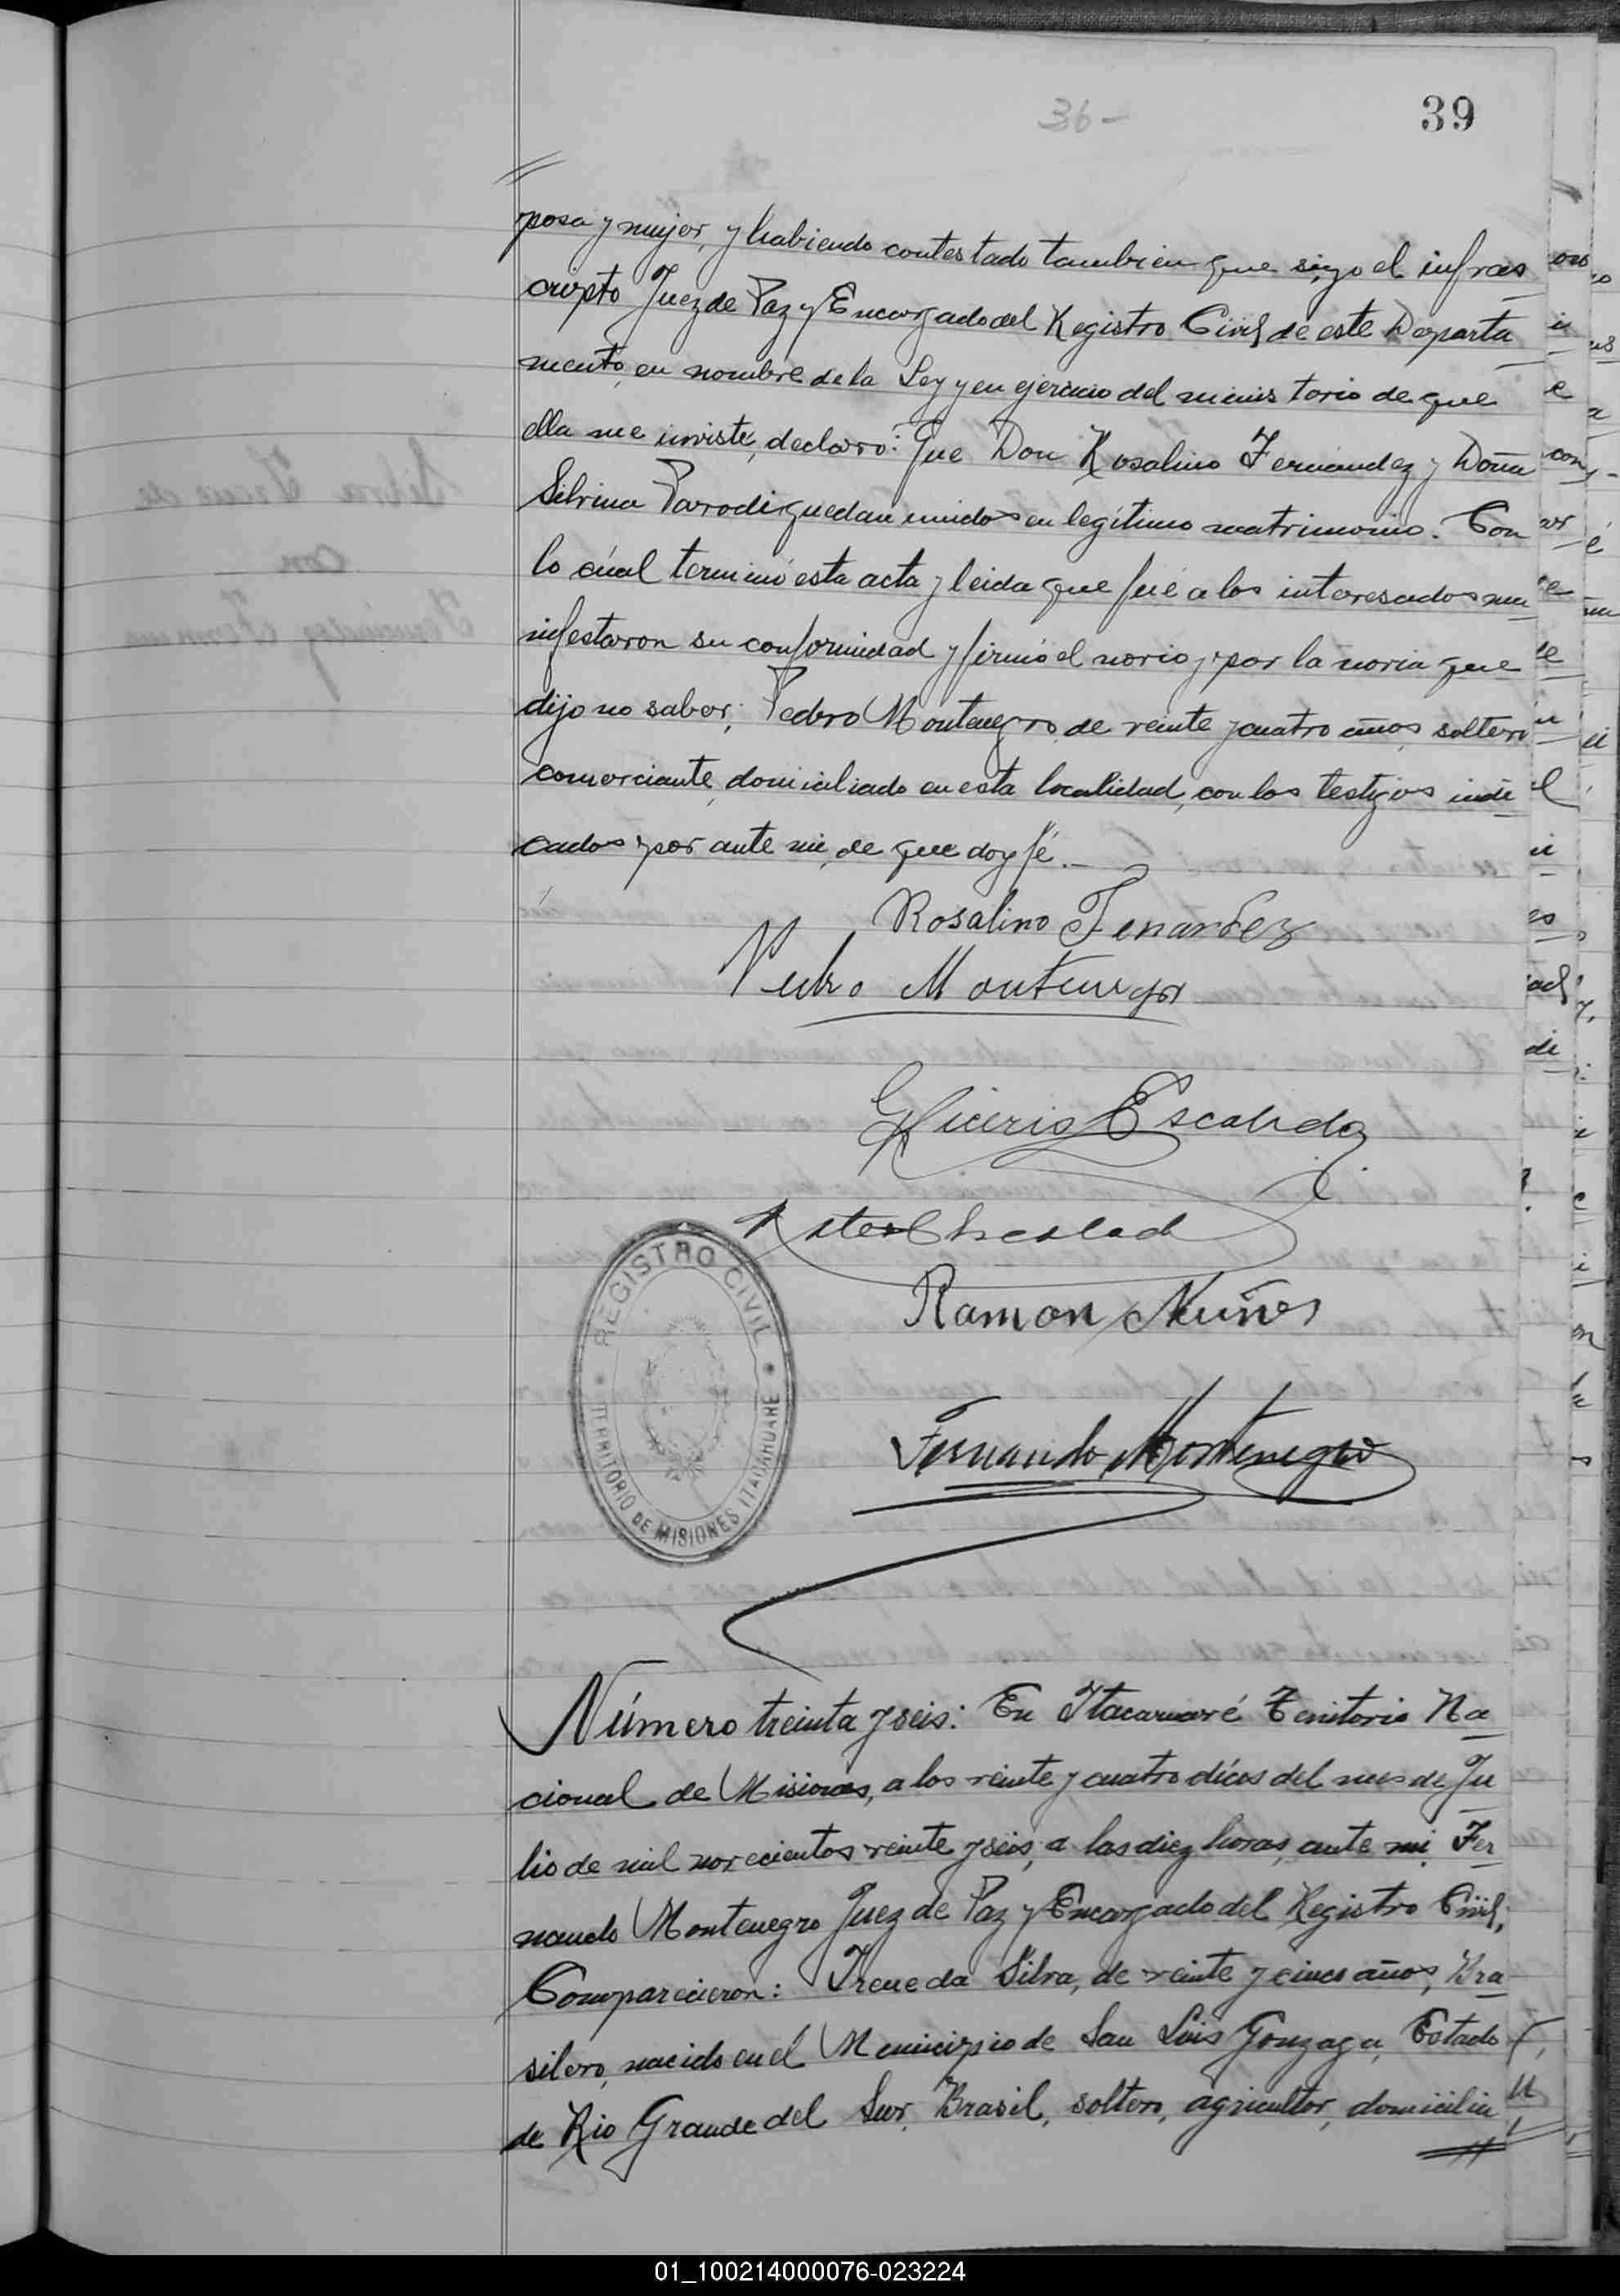 36-
39
posa y mujer, y habiendo contestado tambien que si, yo el infras
cripto Juez de Paz y Encargado del Registro Civil de este Departa
mento, en nombre de la Ley y en ejercicio del minis terio de que
ella me inviste, declaro: Que Don Rosalino Fernandez y Doña
Silvina Parodi, quedan unidos en legítimo matrimonio. Con
lo cúal terminó esta acta y leida que fué a los interesados ma
nifestaron su conformidad y firmó el novio y por la novia que
dijo no saber; Pedro Montenegro, de veinte y cuatro años, soltero
comerciante, domiciliado en esta localidad, con los testigos indi
cados por ante mi, de que doy fé.—
Rosalino Fenandez
Pedro Montenegro
Glicerio Escalada
Ramon Nuñes
REGISTRO CIVIL
TERRITORIO DE MISIONES ITACARUARE
Fernando Montenegro
Número treinta y seis: En Itacaruaré Territorio Na
cional de Misiones, a los veinte y cuatro dias del mes de Ju
lio de mil novecientos veinte y seis, a las diez horas, ante mi, Fer
nando Montenegro Juez de Paz y Encargado del Registro Civil,
Comparecieron: Irene da Silva, de veinte y cinco años, Bra
silero, nacido en el Municipio de San Luis Gonzaga, Estado
de Rio Grande del Sur, Brasil, soltero, agricultor, domicilia
01_100214000076-023224